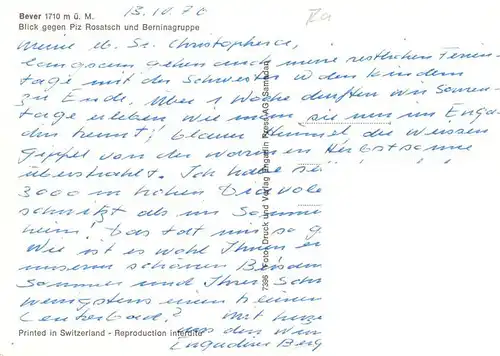 Bever 1710 m ü. M.
13.10.76
Blick gegen Piz Rosatsch und Berninagruppe
Meine lb. Sr. Christophera,
langsam gehen auch meine restlichen Ferien-
tage mit den Schwestern u den Kindern
zu Ende. Über 1 Woche durften wir Sonnen-
tage erleben wie man sie nur im Enga-
din kennt! blauer Himmel die weissen
Gipfel von der warmen Herbstsonne
überstrahlt. Ich habe sie
3000 m hohen Diavole
schnitzt als im Somme
heim! Das tat mir so g
Wie ist es wohl Ihnen er
unserm schönen
Sommer und Ihrer Schw
wenigstens einem kleinen
Leukerbad? Mit herz
aus den
Engadiner Berg
7386 Foto Druck und Verlag Engadin Press AG Samedan
Printed in Switzerland - Reproduction interdite